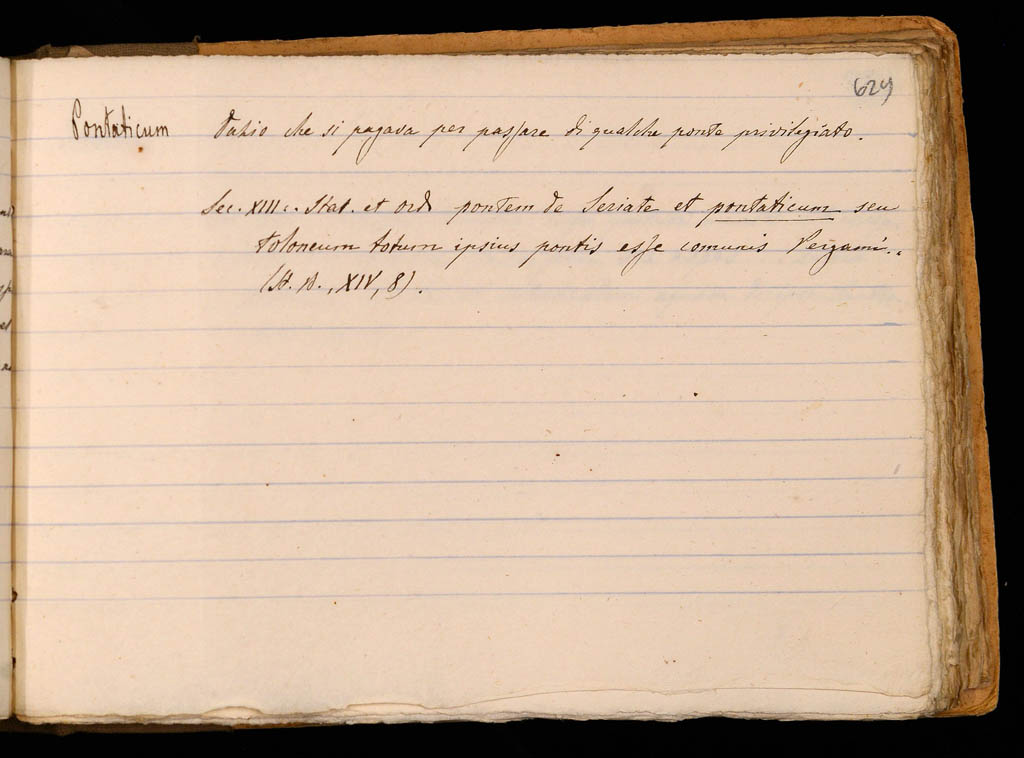 629
Pontaticum Dazio che si pagava per passare di qualche ponte privilegiato.
Sec. XIII. Stat. et ord. pontem de Seriate et pontaticum seu
toloneum totum ipsius pontis esse comunis Pergami..
(St. B., XIV, 8).